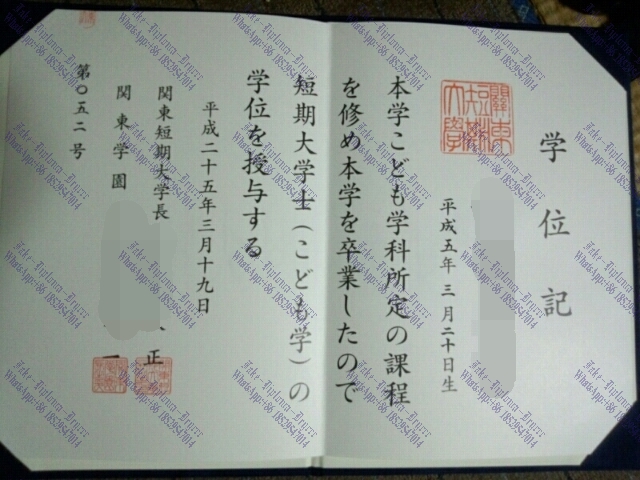 学位記
關東短期大學
平成五年三月二十日生
本学こども学科所定の課程
を修め本学を卒業したので
短期大学士(こども学)の
学位を授与する
平成二十五年三月十九日
関東短期大学長
正
関東学園
一
第〇五二号